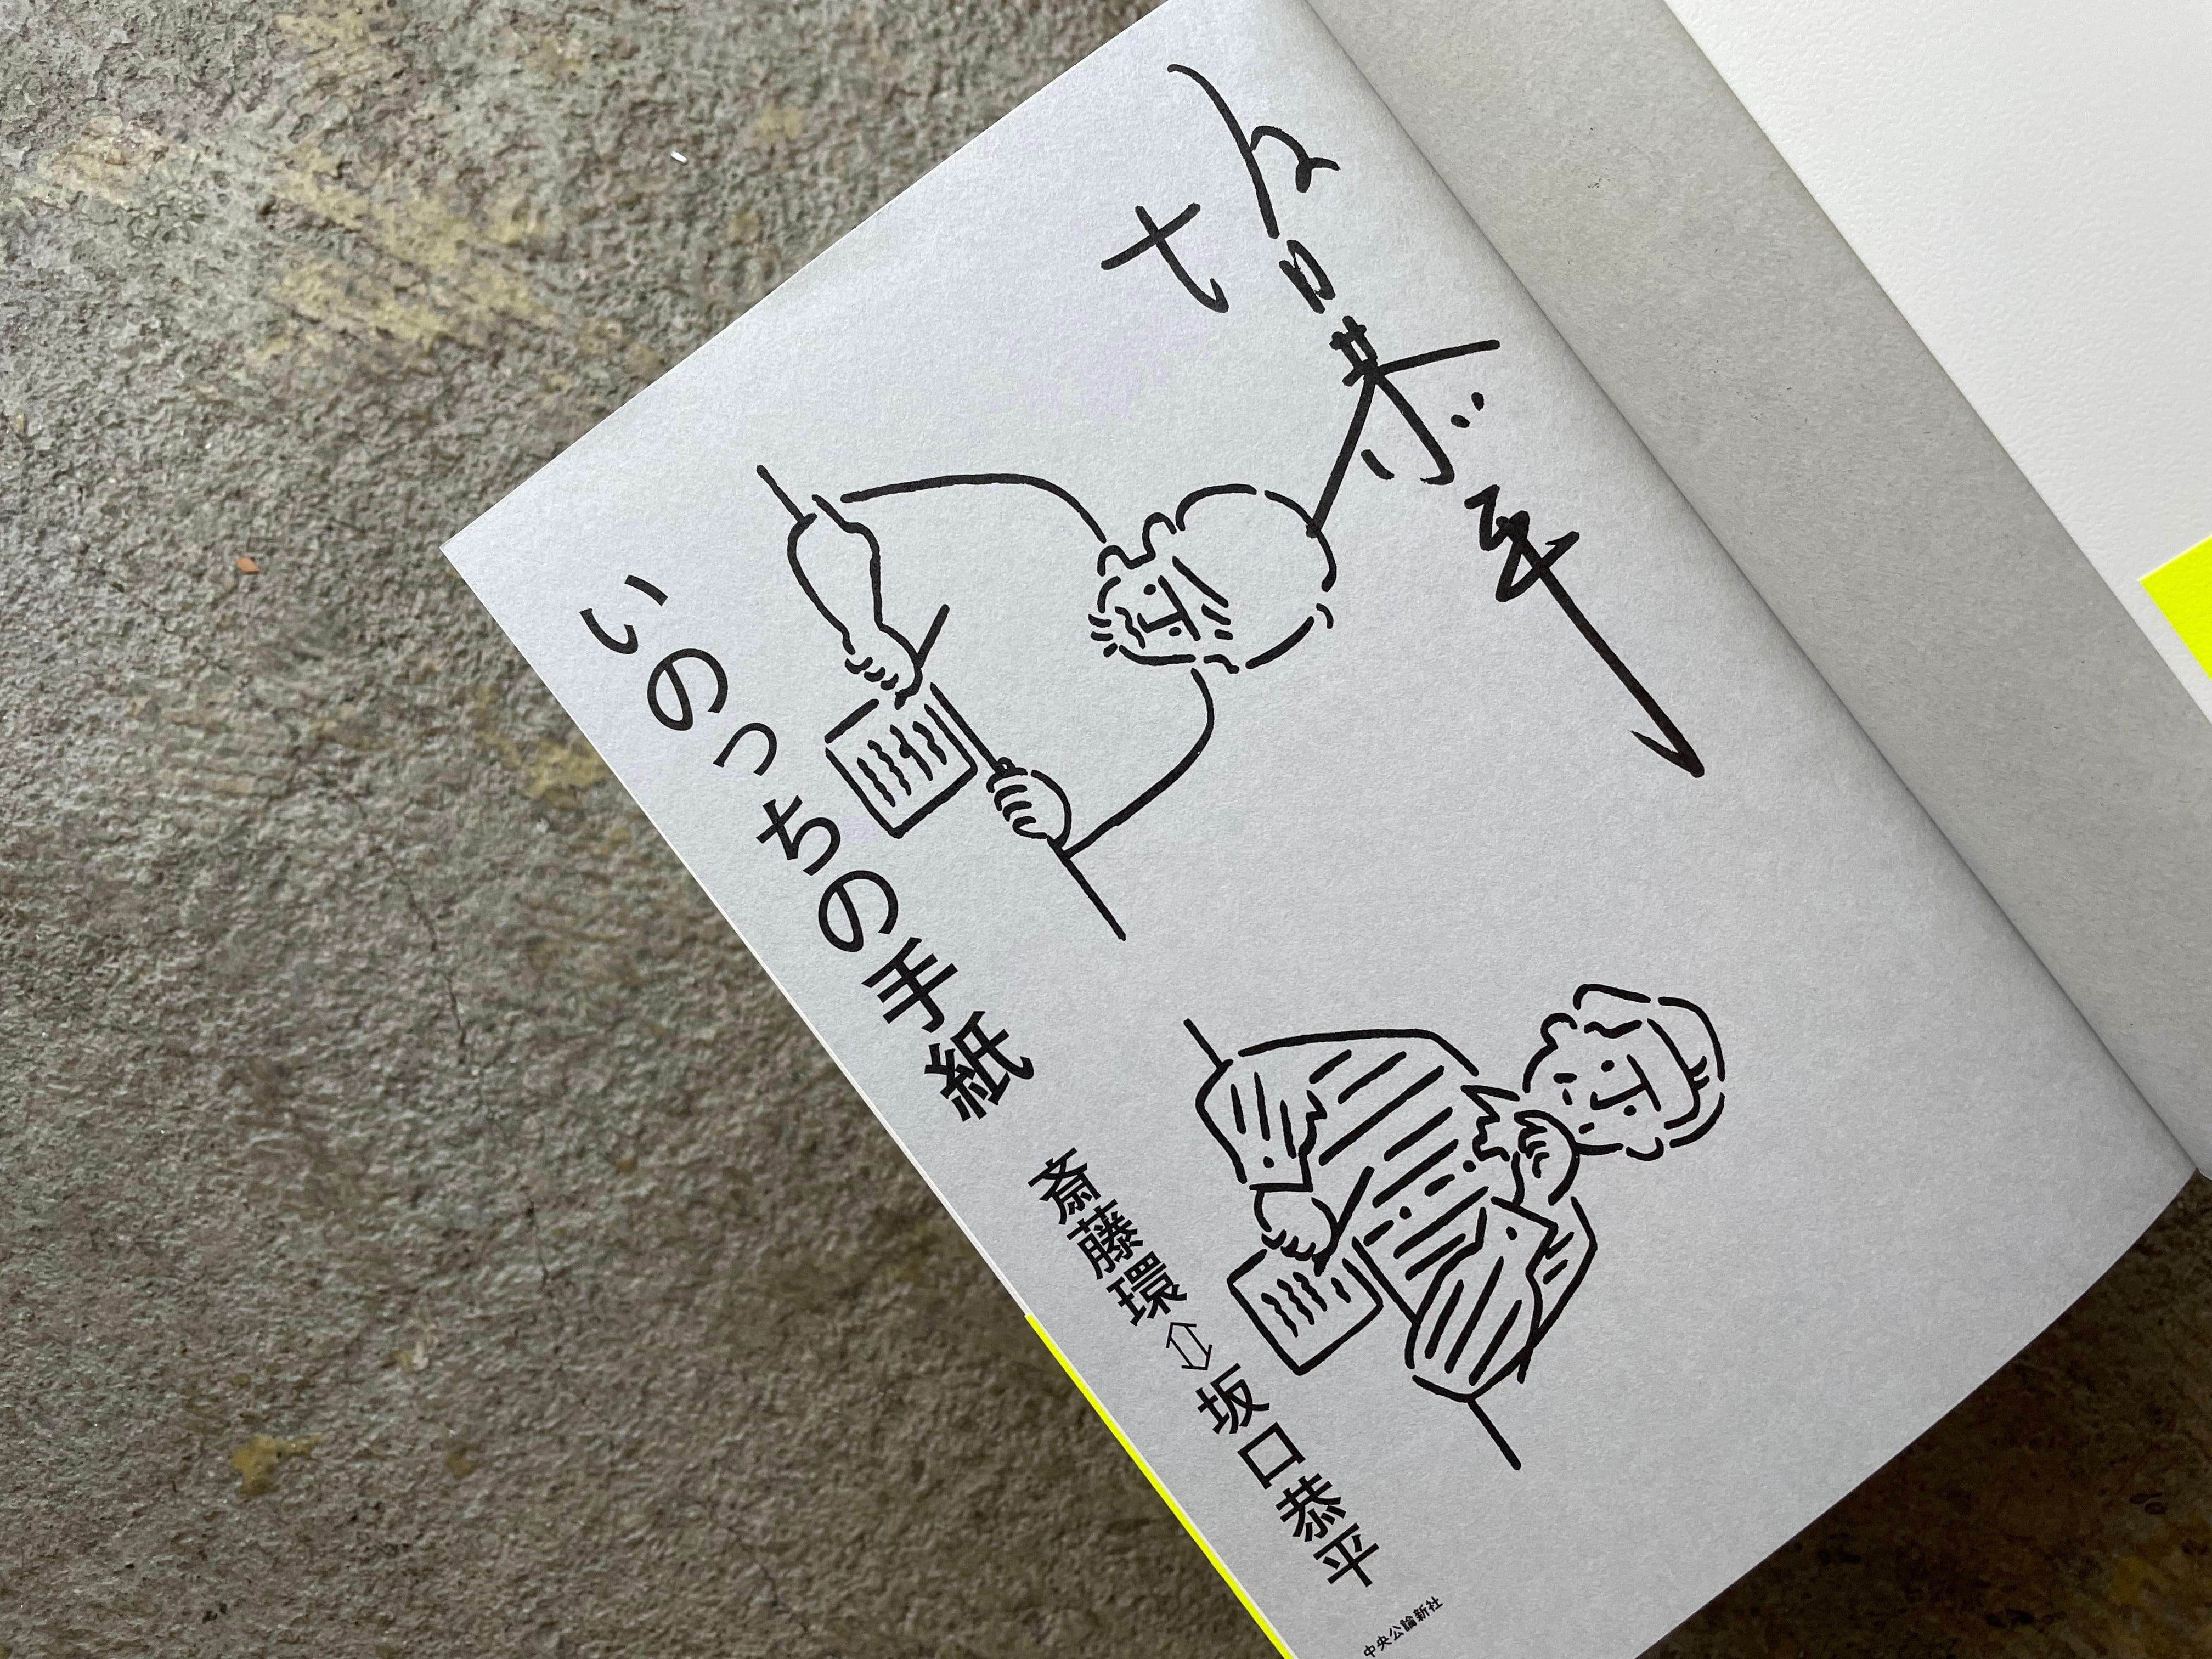 坂口恭平
いのっちの手紙
斎藤環⇔坂口恭平
中央公論新社